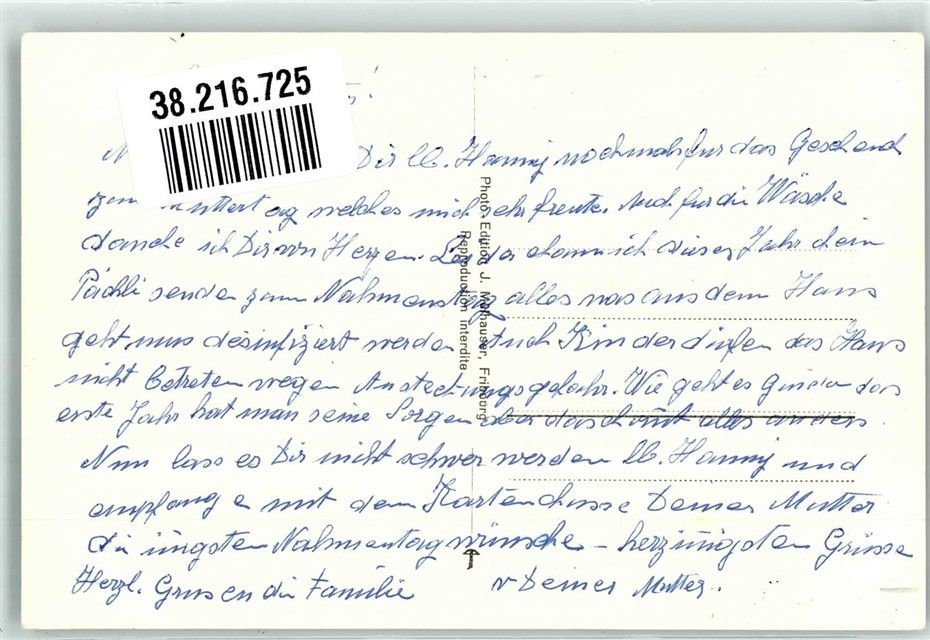 38.216.725
Dir lb. Hanny nochmals für das Geschenck
zum Muttertag welches mich sehr freute. Auch für die Wäsche
dancke ich Dir von Herzen. Leider chann ich dieses Jahr chein
Päckli senden zum Nahmenstag alles was aus dem Haus
geht muss desinfiziert werden Auch Kinder dürfen das Haus
nicht betreten wegen Ansteckungsgefahr. Wie geht es das
erste Jahr hat man seine Sorgen aber das chomt alles anders
Nun lass es Dir nicht schwer werden lb. Hanny und
empfange mit dem Kartenchusse Deiner Mutter
die inigsten Nahmentagwünsche - herzinigsten Grüsse
Herzl. Grusen die Familie v Deiner Mutter.
Photo Edition J. Mülhauser, Fribourg
Reproduction interdite